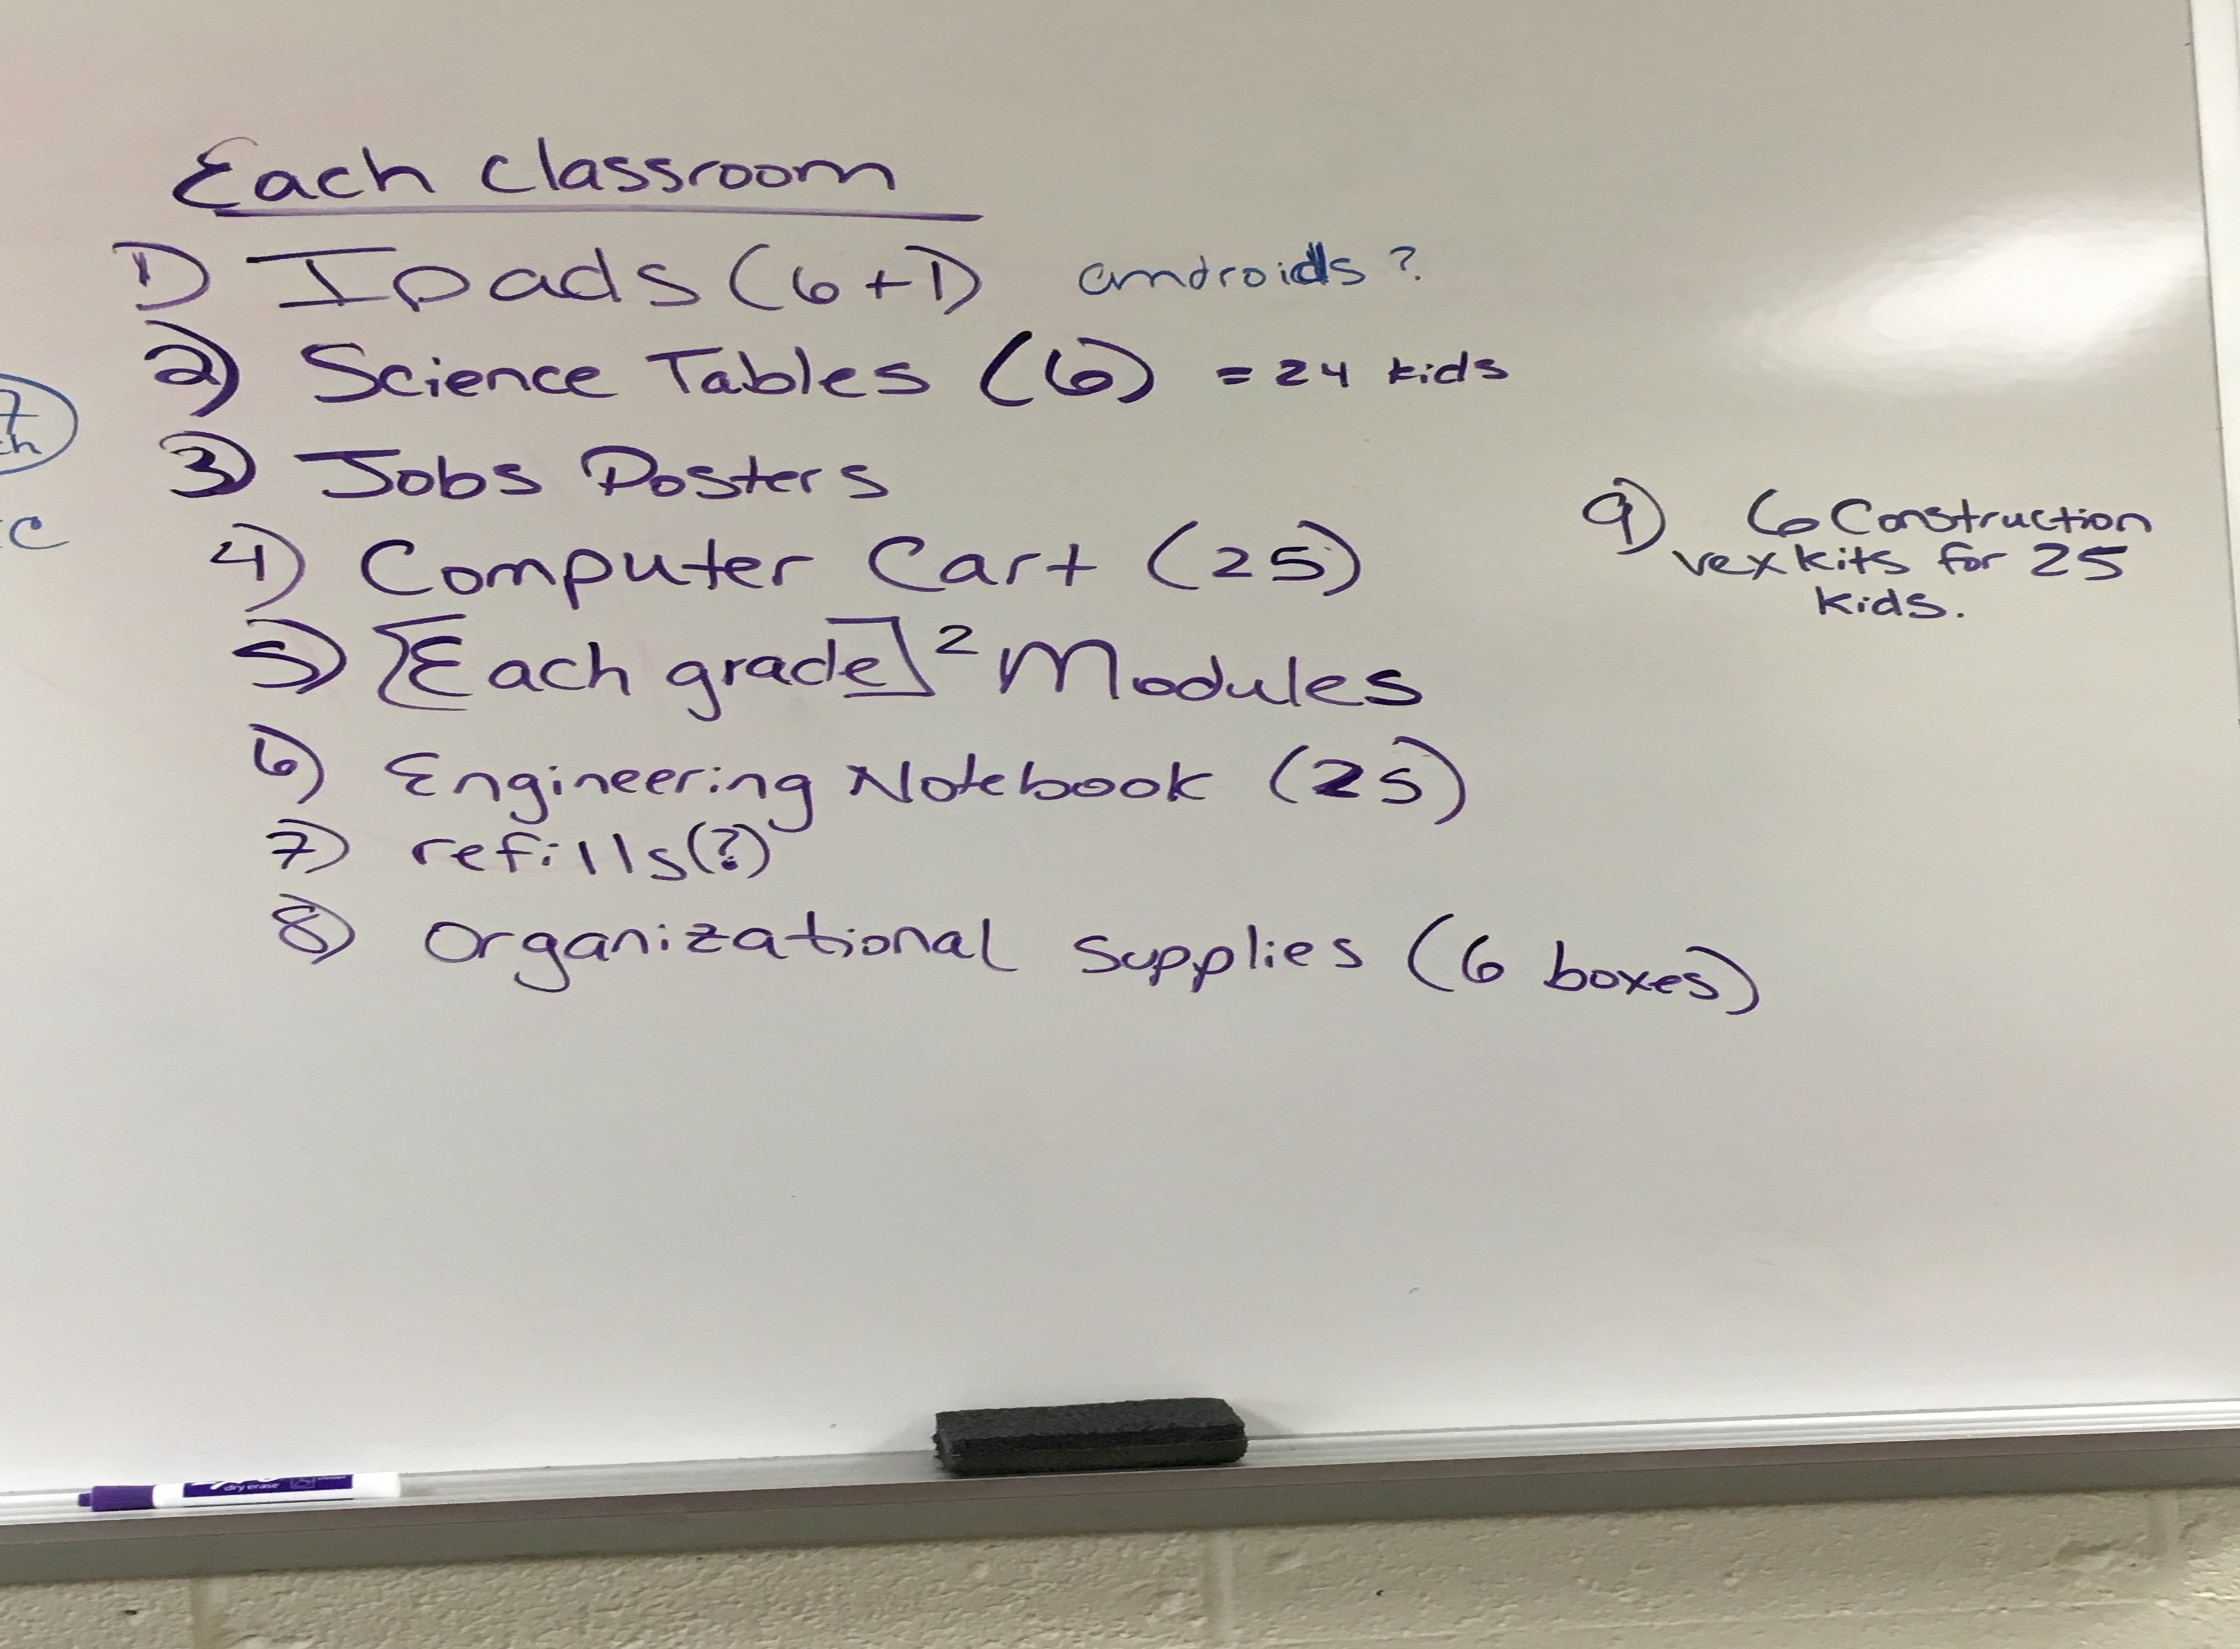 Each classroom
1) Ipads (6+1) androids?
2) Science Tables (6) = 24 kids
3) Jobs Posters
4) Computer Cart (25)
5) [Each grade]² Modules
6) Engineering Notebook (25)
7) refills(?)
8) Organizational Supplies (6 boxes)
9) 6 Construction
vex kits for 25
kids.
7
ch
C
dry erase